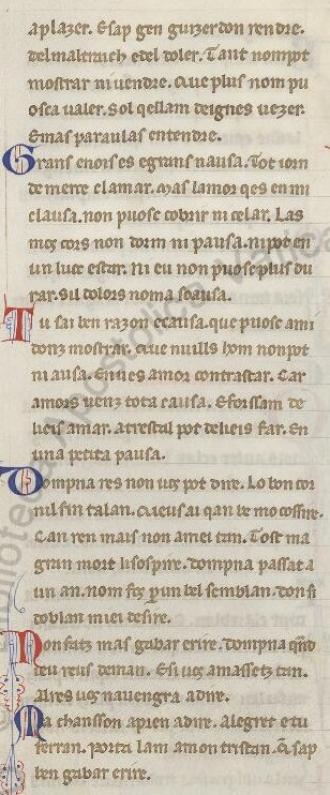 aplazer. Esap gen guizerdon rendre.
delmaltraich edel doler. Tant nompot
mostrar ni uendre. Que plus nom pu
osca ualer. Sol qellam deignes uezer.
Emas paraulas entendre.
Grans enois es egrans nausa. Tot iorn
de merce clamar. Mas lamor qes en mi
clausa. non puosc cobrir ni celar. Las
mos cors non dorm ni pausa. ni pot en
un luec estar. Ni eu non puosc plus du
rar. sil dolors noma soausa.
Tu sai ben razon ecausa. que puosc ami
donz mostrar. Que nuills hom non pot
ni ausa. Enues amor contrastar. Car
amors uenz tota causa. Eforssam de
lieis amar. atrestal pot delieis far. En
una petita pausa.
Dompna res non uos pot dire. Lo bon cor
nil fin talan. Qieus ai qan be mo cossire.
Can ren mais non amei tan. Tost ma
gran mort li sospire. dompna passat a
un an. nom fos p un bel semblan. don si
doblan miei desire.
Non fatz mas gabar erire. dompna qnd
ieu reus deman. Esi uos amassetz tan.
Alres uos nauengra adire.
Ma chansson apren adire. Alegret e tu
ferran. porta lam amon tristan. Qi sap
ben gabar erire.
Biblioteca Apostolica Vatica